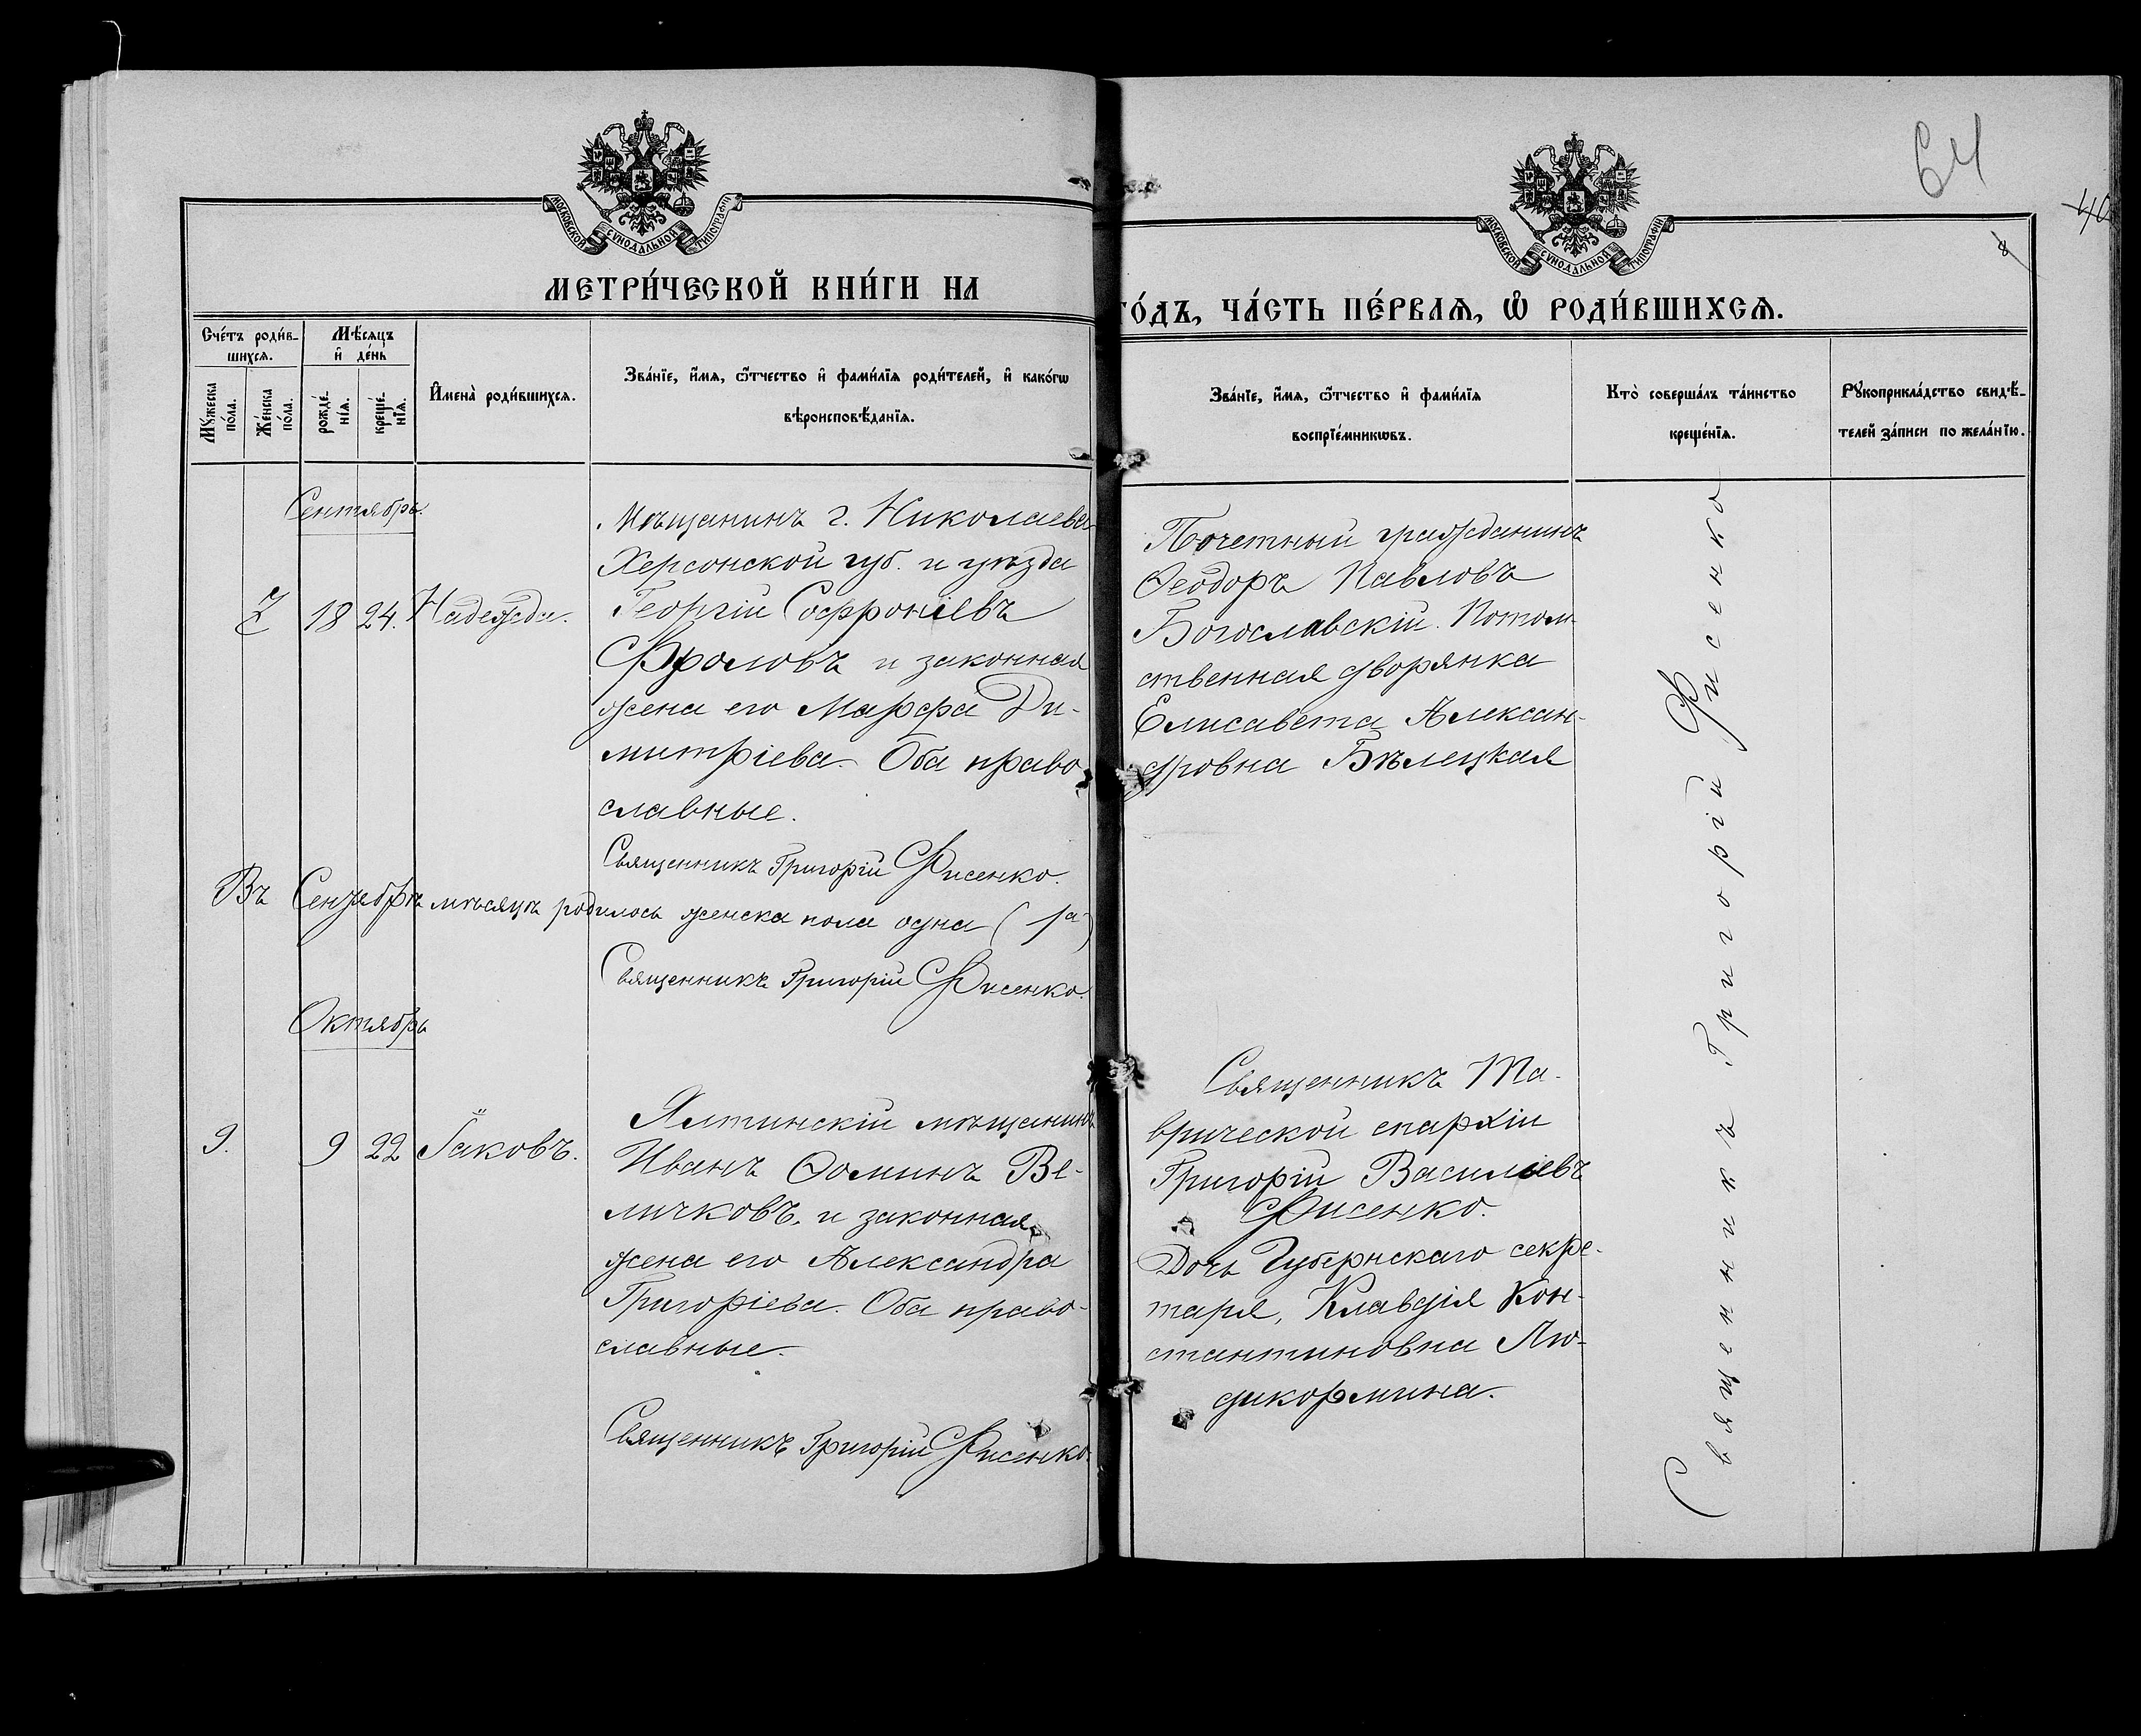 64
40
8
МОСКОВСКОЙ СѴНОДАЛЬНОЙ ТИПОГРАФІИ
МОСКОВСКОЙ СѴНОДАЛЬНОЙ ТИПОГРАФІИ
МЕТРИ́ЧЕСКОЙ КНИ́ГИ НА
ГО́ДЪ, ЧА́СТЬ ПЕ́РВАѦ, Ѡ҆ РОДИ́ВШИХСѦ.
Сче́тъ роди́в-
шихсѧ.
Мѣ́сѧцъ
и҆ де́нь
Мꙋ́жеска
по́ла.
Же́нска
по́ла.
рожде́-
нїѧ.
креще́-
нїѧ.
И҆мена̀ роди́вшихсѧ.
Зва́нїе, и҆́мѧ, ѻ҆́тчество и҆ фами́лїѧ роди́телей, и҆ како́гѡ
вѣроисповѣ́данїѧ.
Зва́нїе, и҆́мѧ, ѻ҆́тчество и҆ фами́лїѧ
воспрїе́мникѡвъ.
Кто̀ соверша́лъ та́инство
креще́нїѧ.
Рꙋкоприкла́дство свидѣ́-
телей за́писи по жела́нїю.
Сентябрь.
7 18 24. Надежда.
Мѣщанинъ г. Николаева
Херсонской губ. и уѣзда
Георгій Софроніевъ
Фроловъ и законная
жена его Марфа Ди-
митріева. Оба право
славные.
Священникъ Григорій Фисенко.
Почетный гражданинъ
Ѳеодоръ Павловъ
Богославскій. Потом-
ственная дворянка
Елисавета Алексан-
дровна Бѣлецкая
Въ Сентябрѣ мѣсяцѣ родилось женска пола одна (1а)
Священникъ Григорій Фисенко.
Октябрь
9. 9 22 Іаковъ.
Ялтинскій мѣщанинъ
Иванъ Ѳоминъ Ве-
личковъ. и законная
жена его Александра
Григоріева. Оба право-
славные.
Священникъ Григорій Фисенко.
Священникъ Та-
врической епархіи
Григорій Василіевъ
Фисенко.
Дочь Губернскаго секре-
таря, Клавдія Кон-
стантиновна Лю-
дикормина.
Священникъ Григорій Фисенко